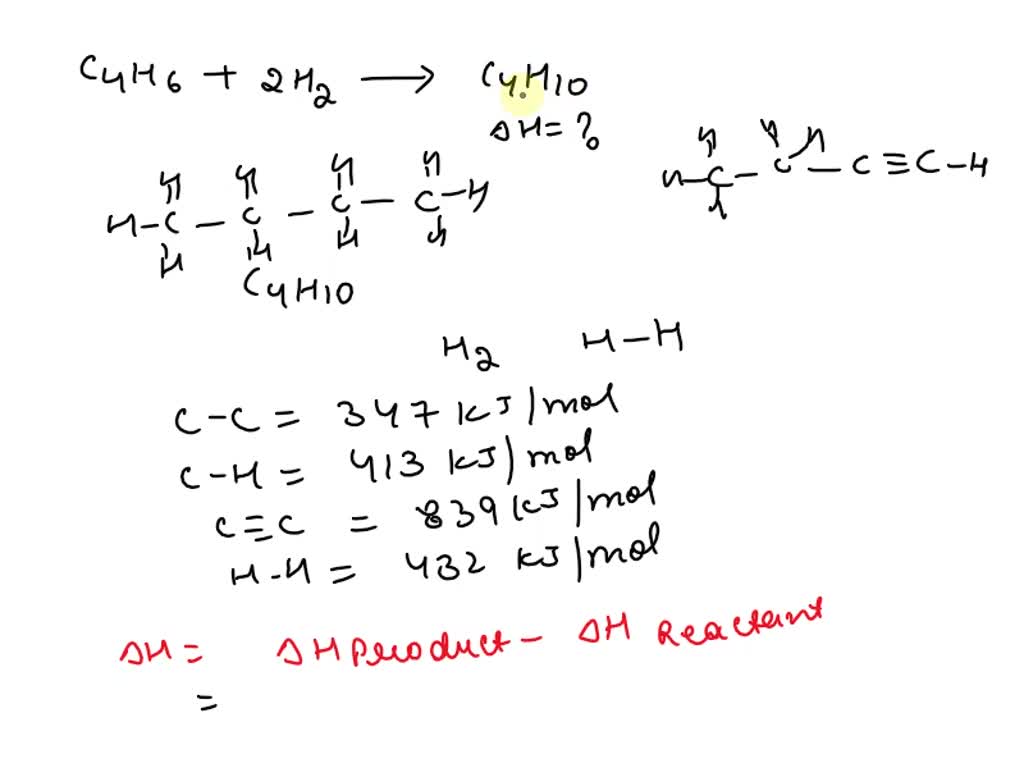 C4H6 + 2H2 → C4H10
ΔH = ?
H H H H
H-C - C - C - C-H
H H H H
C4H10
H H H
H-C - C - C≡C-H
H
H2 H-H
C-C = 347 KJ/mol
C-H = 413 KJ/mol
C≡C = 839 KJ/mol
H-H = 432 KJ/mol
ΔH = ΔH Product - ΔH Reactant
=